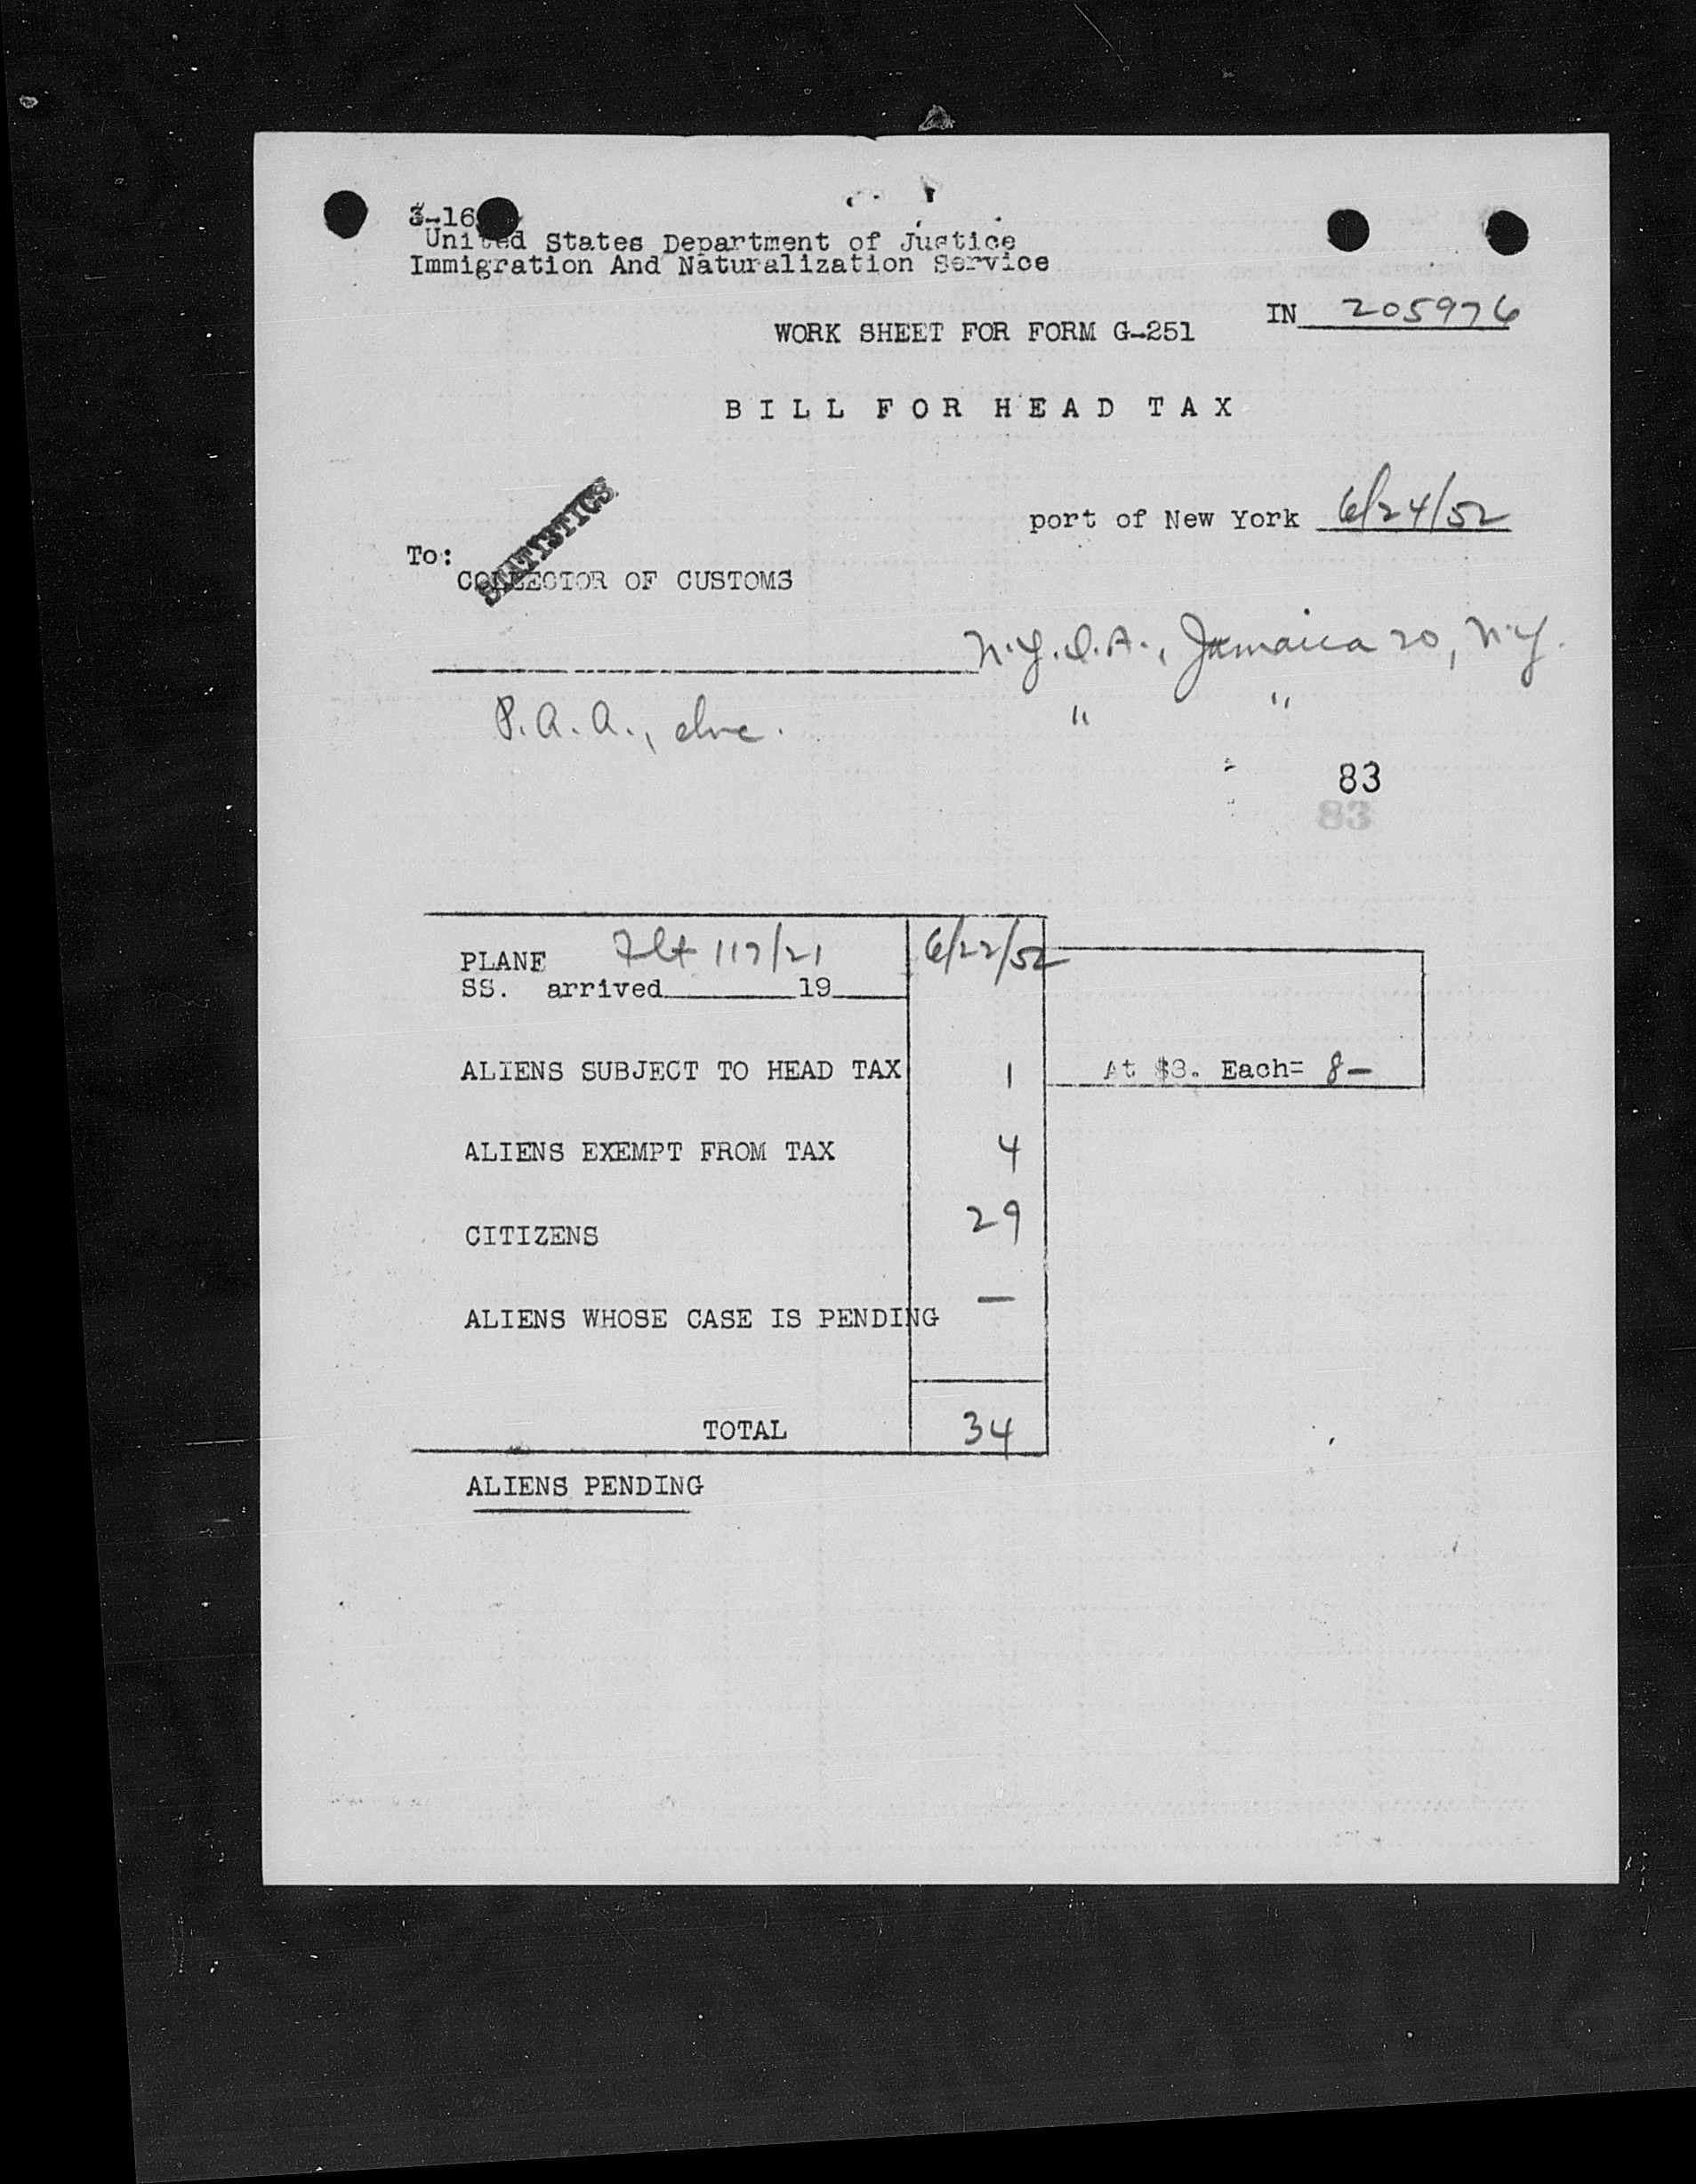 3-16
United States Department of Justice
Immigration And Naturalization Service
IN 205976
WORK SHEET FOR FORM G-251
BILL FOR HEAD TAX
STATISTICS
port of New York 6/24/52
To:
COLLECTOR OF CUSTOMS
N.Y.I.A., Jamaica 20, N.Y.
P.A.A., Inc. " "
83
83
PLANE Flt 117/21 6/22/52
SS. arrived 19
ALIENS SUBJECT TO HEAD TAX 1 At $8. Each= 8-
ALIENS EXEMPT FROM TAX 4
CITIZENS 29
ALIENS WHOSE CASE IS PENDING —
TOTAL 34
ALIENS PENDING